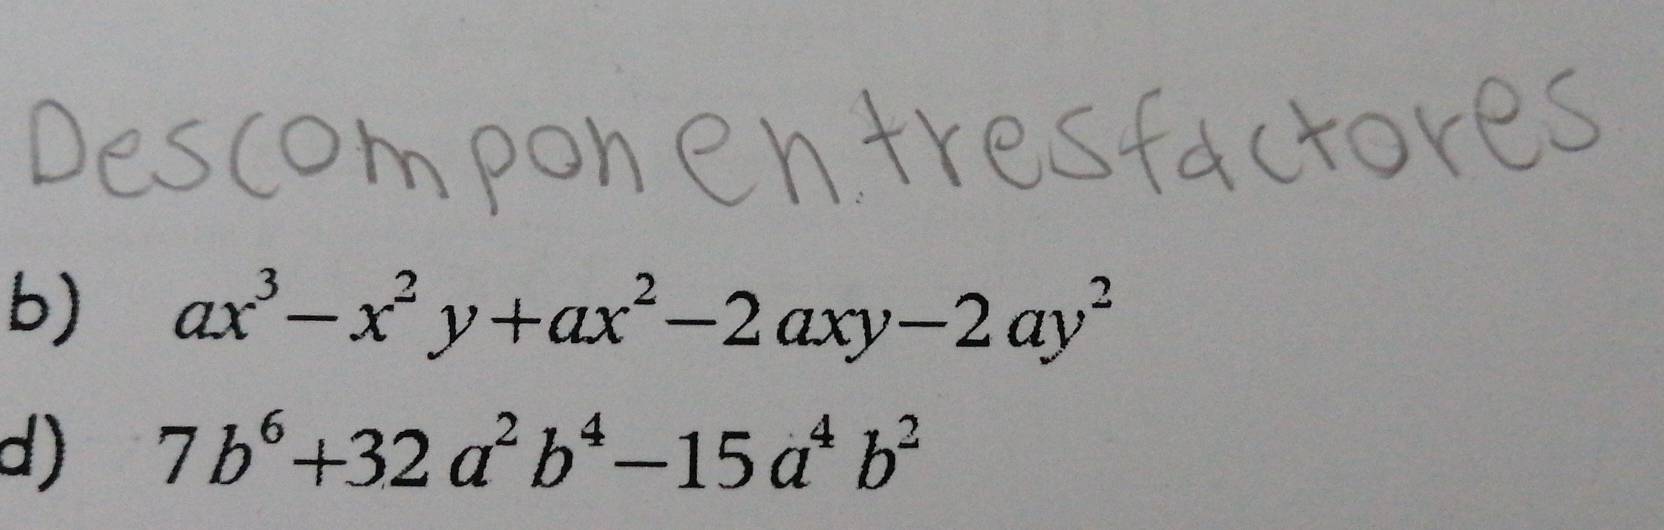 Descompon en tres factores
b) ax³−x²y+ax²−2axy−2ay²
d) 7b⁶+32a²b⁴−15a⁴b²